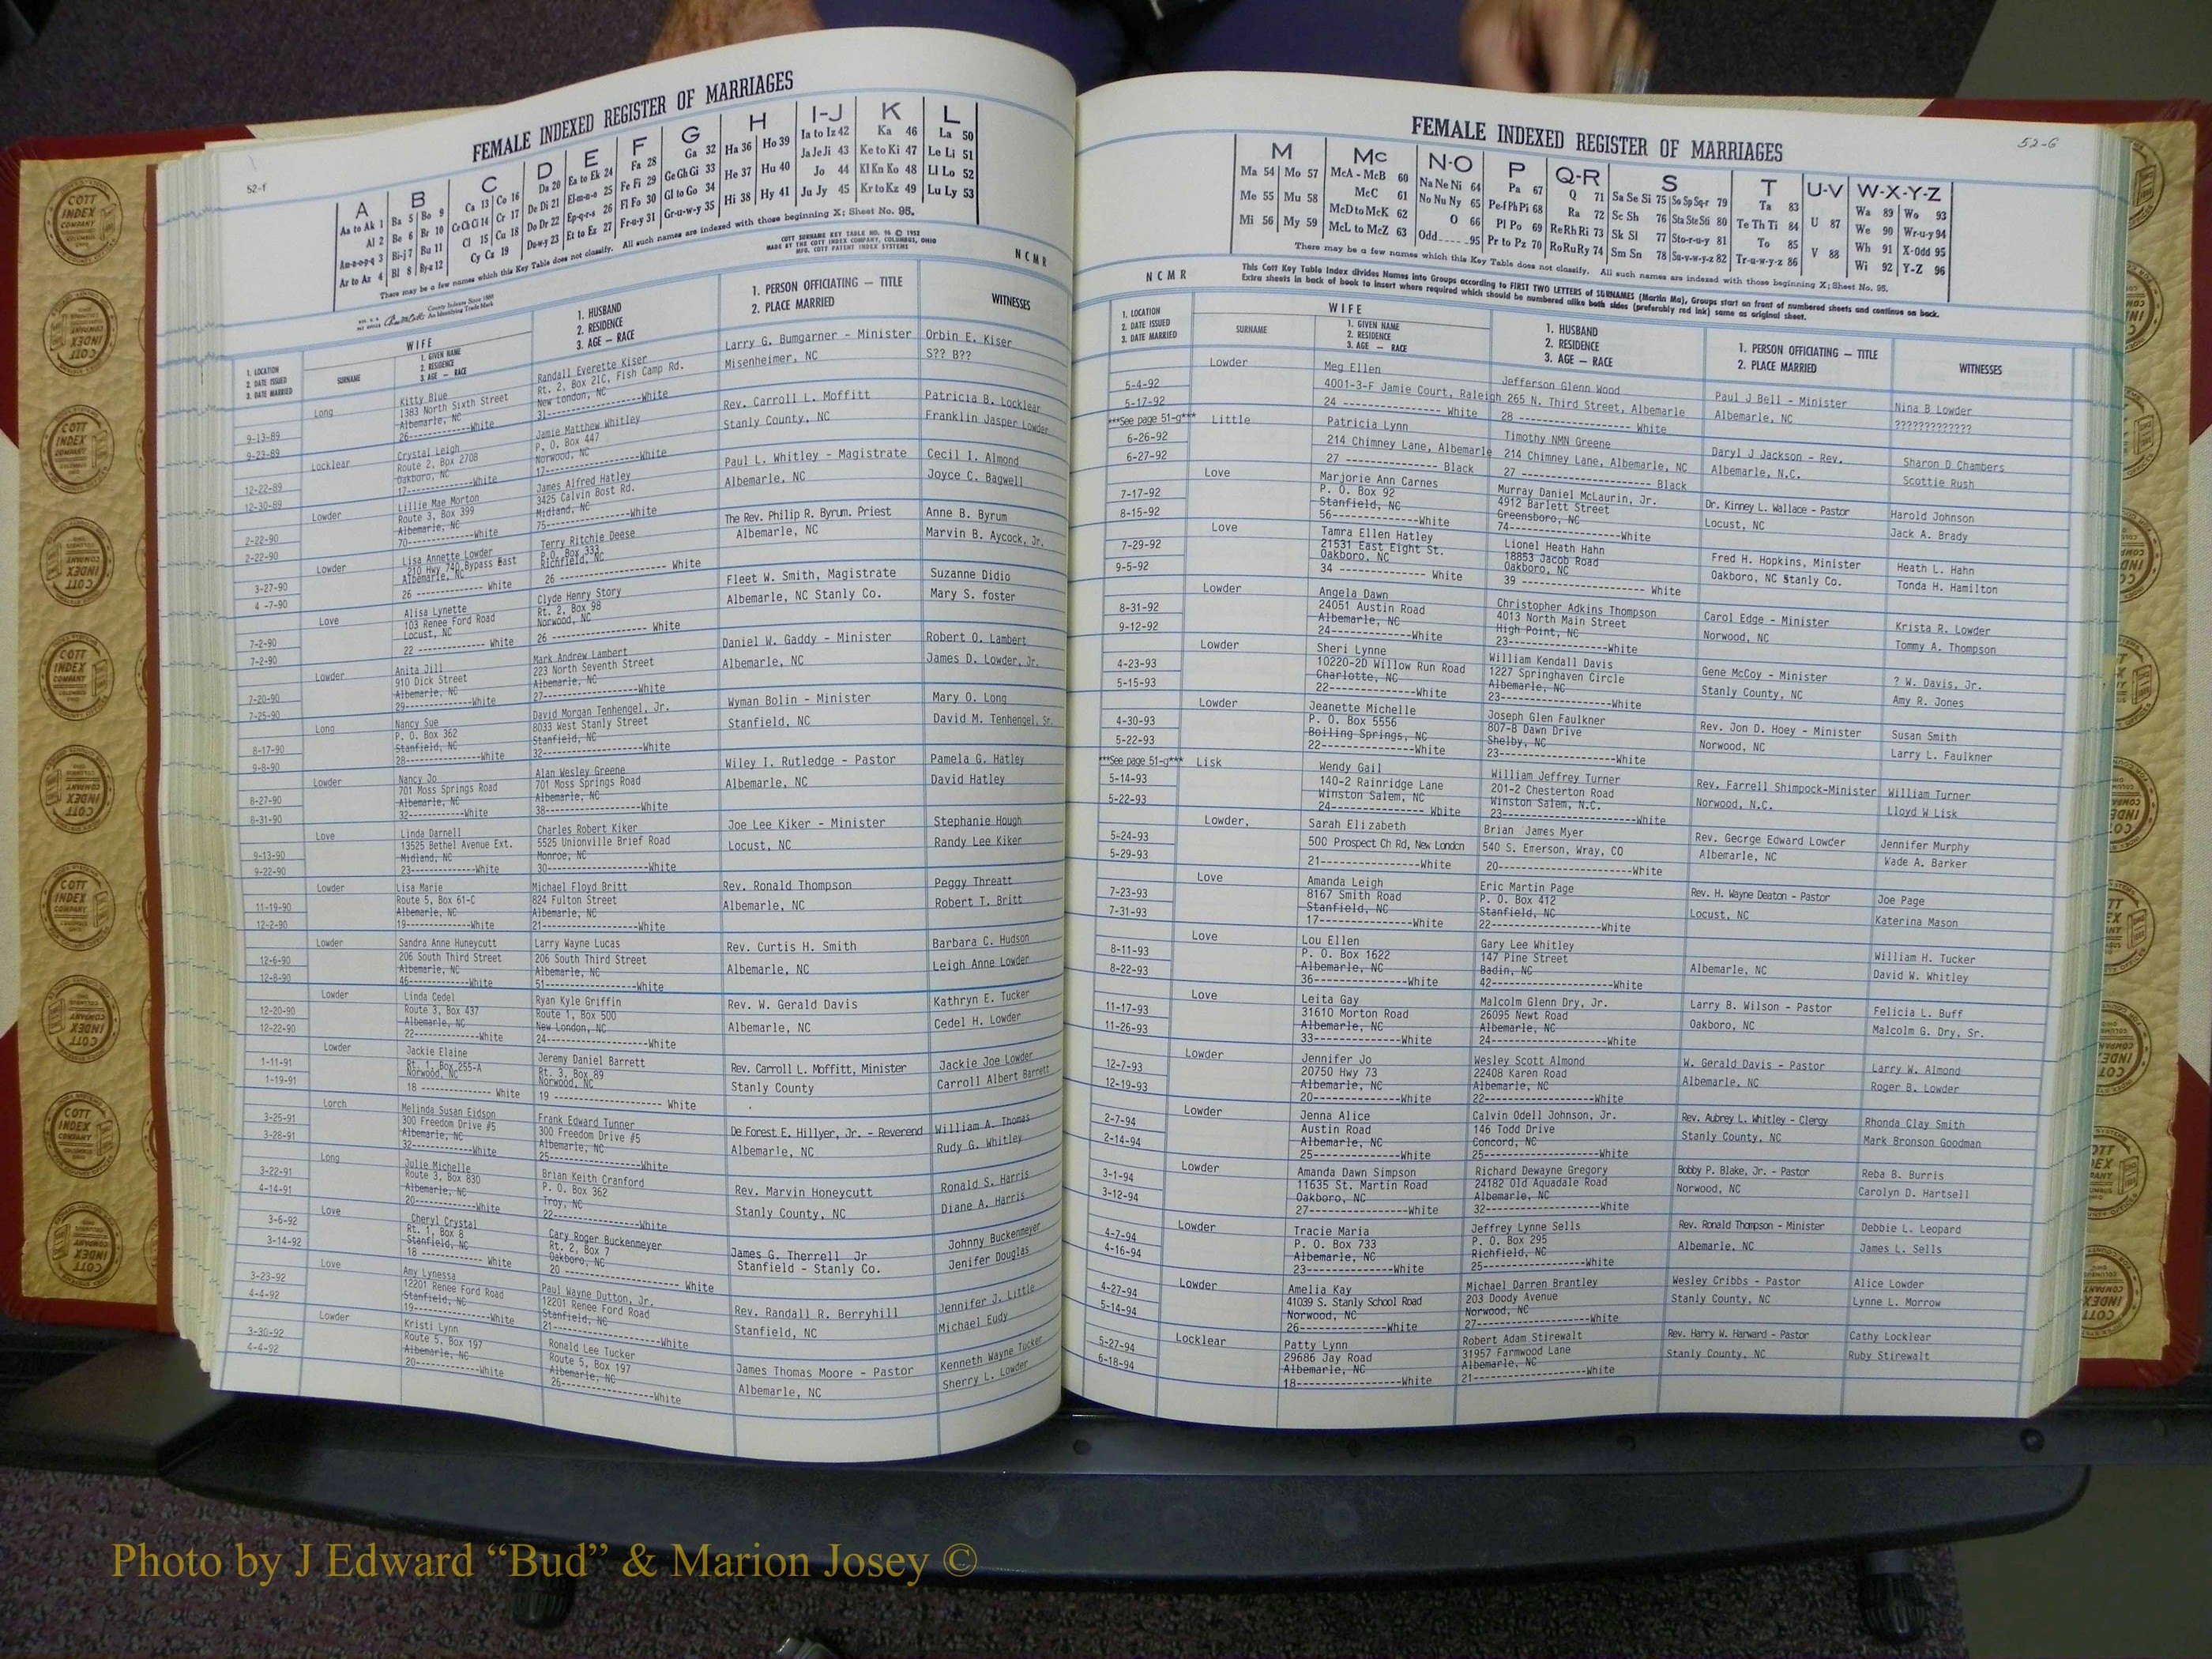 FEMALE INDEXED REGISTER OF MARRIAGES
52-f
A B C D E F G H I-J K L
Aa to Ak 1 Ba 5 Bo 9 Ca 13 Co 16 Da 20 Ea to Ek 24 Fa 28 Ga 32 Ha 36 Ho 39 Ia to Iz 42 Ka 46 La 50
Al 2 Be 6 Br 10 Ce Ch Ci 14 Cr 17 De Di 21 El-m-n-o 25 Fe Fi 29 Ge Gh Gi 33 He 37 Hu 40 Ja Je Ji 43 Ke to Ki 47 Le Li 51
Am-n-o-p-q 3 Bi-j 7 Bu 11 Cl 15 Cu 18 Do Dr 22 Ep-q-r-s 26 Fl Fo 30 Gl to Go 34 Hi 38 Hy 41 Jo 44 Kl Kn Ko 48 Ll Lo 52
Ar to Az 4 Bl 8 By-z 12 Cy Cz 19 Du-w-y 23 Et to Ez 27 Fr-u-y 31 Gr-u-w-y 35 Ju Jy 45 Kr to Kz 49 Lu Ly 53
There may be a few names which this Key Table does not classify. All such names are indexed with those beginning X; Sheet No. 95.
COTT SURNAME KEY TABLE NO. 96 © 1952
MADE BY THE COTT INDEX COMPANY, COLUMBUS, OHIO
MFG. COTT PATENT INDEX SYSTEMS
County Indexes Since 1888
An Identifying Trade Mark
N C M R
1. LOCATION
2. DATE ISSUED
3. DATE MARRIED
WIFE
SURNAME
1. GIVEN NAME
2. RESIDENCE
3. AGE — RACE
1. HUSBAND
2. RESIDENCE
3. AGE — RACE
1. PERSON OFFICIATING — TITLE
2. PLACE MARRIED
WITNESSES
9-13-89
9-23-89
Long
Kitty Blue
1383 North Sixth Street
Albemarle, NC
26------------White
Randall Everette Kiser
Rt. 2, Box 21C, Fish Camp Rd.
New London, NC
31----------------White
Larry G. Bumgarner - Minister
Misenheimer, NC
Orbin E. Kiser
S?? B??
12-22-89
12-30-89
Locklear
Crystal Leigh
Route 2, Box 270B
Oakboro, NC
17------------White
Jamie Matthew Whitley
P. O. Box 447
Norwood, NC
17----------------White
Rev. Carroll L. Moffitt
Stanly County, NC
Patricia B. Locklear
Franklin Jasper Lowder
2-22-90
2-22-90
Lowder
Lillie Mae Morton
Route 3, Box 399
Albemarle, NC
70------------White
James Alfred Hatley
3425 Calvin Bost Rd.
Midland, NC
75----------------White
Paul L. Whitley - Magistrate
Albemarle, NC
Cecil I. Almond
Joyce C. Bagwell
3-27-90
4 -7-90
Lowder
Lisa Annette Lowder
210 Hwy 740 Bypass East
Albemarle, NC
26 ------------ White
Terry Ritchie Deese
P.O. Box 333
Richfield, NC
26 ---------------- White
The Rev. Philip R. Byrum. Priest
Albemarle, NC
Anne B. Byrum
Marvin B. Aycock, Jr.
7-2-90
7-2-90
Love
Alisa Lynette
103 Renee Ford Road
Locust, NC
22 ------------ White
Clyde Henry Story
Rt. 2, Box 98
Norwood, NC
26 ---------------- White
Fleet W. Smith, Magistrate
Albemarle, NC Stanly Co.
Suzanne Didio
Mary S. foster
7-20-90
7-25-90
Lowder
Anita Jill
910 Dick Street
Albemarle, NC
29------------White
Mark Andrew Lambert
223 North Seventh Street
Albemarle, NC
27----------------White
Daniel W. Gaddy - Minister
Albemarle, NC
Robert O. Lambert
James D. Lowder, Jr.
8-17-90
9-8-90
Long
Nancy Sue
P. O. Box 362
Stanfield, NC
28------------White
David Morgan Tenhengel, Jr.
8033 West Stanly Street
Stanfield, NC
32----------------White
Wyman Bolin - Minister
Stanfield, NC
Mary O. Long
David M. Tenhengel, Sr.
8-27-90
8-31-90
Lowder
Nancy Jo
701 Moss Springs Road
Albemarle, NC
32------------White
Alan Wesley Greene
701 Moss Springs Road
Albemarle, NC
38----------------White
Wiley I. Rutledge - Pastor
Albemarle, NC
Pamela G. Hatley
David Hatley
9-13-90
9-22-90
Love
Linda Darnell
13525 Bethel Avenue Ext.
Midland, NC
23------------White
Charles Robert Kiker
5525 Unionville Brief Road
Monroe, NC
30----------------White
Joe Lee Kiker - Minister
Locust, NC
Stephanie Hough
Randy Lee Kiker
11-19-90
12-2-90
Lowder
Lisa Marie
Route 5, Box 61-C
Albemarle, NC
19------------White
Michael Floyd Britt
824 Fulton Street
Albemarle, NC
21----------------White
Rev. Ronald Thompson
Albemarle, NC
Peggy Threatt
Robert T. Britt
12-6-90
12-8-90
Lowder
Sandra Anne Huneycutt
206 South Third Street
Albemarle, NC
46------------White
Larry Wayne Lucas
206 South Third Street
Albemarle, NC
51----------------White
Rev. Curtis H. Smith
Albemarle, NC
Barbara C. Hudson
Leigh Anne Lowder
12-20-90
12-22-90
Lowder
Linda Cedel
Route 3, Box 437
Albemarle, NC
22------------White
Ryan Kyle Griffin
Route 1, Box 500
New London, NC
24----------------White
Rev. W. Gerald Davis
Albemarle, NC
Kathryn E. Tucker
Cedel H. Lowder
1-11-91
1-19-91
Lowder
Jackie Elaine
Rt. 1, Box 255-A
Norwood, NC
18 ------------ White
Jeremy Daniel Barrett
Rt. 3, Box 89
Norwood, NC
19 ---------------- White
Rev. Carroll L. Moffitt, Minister
Stanly County
Jackie Joe Lowder
Carroll Albert Barrett
3-25-91
3-28-91
Lorch
Melinda Susan Eidson
300 Freedom Drive #5
Albemarle, NC
32------------White
Frank Edward Tunner
300 Freedom Drive #5
Albemarle, NC
25----------------White
De Forest E. Hillyer, Jr. - Reverend
Albemarle, NC
William A. Thomas
Rudy G. Whitley
3-22-91
4-14-91
Long
Julie Michelle
Route 3, Box 830
Albemarle, NC
20------------White
Brian Keith Cranford
P. O. Box 362
Troy, NC
22----------------White
Rev. Marvin Honeycutt
Stanly County, NC
Ronald S. Harris
Diane A. Harris
3-6-92
3-14-92
Love
Cheryl Crystal
Rt. 1, Box 8
Stanfield, NC
18 ------------ White
Cary Roger Buckenmeyer
Rt. 2, Box 7
Oakboro, NC
20 ---------------- White
James G. Therrell Jr
Stanfield - Stanly Co.
Johnny Buckenmeyer
Jenifer Douglas
3-23-92
4-4-92
Love
Amy Lynessa
12201 Renee Ford Road
Stanfield, NC
19------------White
Paul Wayne Dutton, Jr.
12201 Renee Ford Road
Stanfield, NC
21----------------White
Rev. Randall R. Berryhill
Stanfield, NC
Jennifer J. Little
Michael Eudy
3-30-92
4-4-92
Lowder
Kristi Lynn
Route 5, Box 197
Albemarle, NC
20------------White
Ronald Lee Tucker
Route 5, Box 197
Albemarle, NC
26----------------White
James Thomas Moore - Pastor
Albemarle, NC
Kenneth Wayne Tucker
Sherry L. Lowder
FEMALE INDEXED REGISTER OF MARRIAGES
52-G
M Mc N-O P Q-R S T U-V W-X-Y-Z
Ma 54 Mo 57 McA - McB 60 Na Ne Ni 64 Pa 67 Q 71 Sa Se Si 75 So Sp Sq-r 79 Ta 83 Wa 89 Wo 93
Me 55 Mu 58 McC 61 No Nu Ny 65 Pe-f Ph Pi 68 Ra 72 Sc Sh 76 Sta Ste Sti 80 Te Th Ti 84 U 87 We 90 Wr-u-y 94
Mi 56 My 59 McD to McK 62 O 66 Pl Po 69 Re Rh Ri 73 Sk Sl 77 Sto-r-u-y 81 To 85 Wh 91 X-Odd 95
McL to McZ 63 Odd 95 Pr to Pz 70 Ro Ru Ry 74 Sm Sn 78 Su-v-w-y-z 82 Tr-u-w-y-z 86 V 88 Wi 92 Y-Z 96
There may be a few names which this Key Table does not classify. All such names are indexed with those beginning X; Sheet No. 95.
This Cott Key Table Index divides Names into Groups according to FIRST TWO LETTERS of SURNAMES (Martin Ma), Groups start on front of numbered sheets and continue on back.
Extra sheets in back of book to insert where required which should be numbered alike both sides (preferably red ink) same as original sheet.
N C M R
1. LOCATION
2. DATE ISSUED
3. DATE MARRIED
WIFE
SURNAME
1. GIVEN NAME
2. RESIDENCE
3. AGE — RACE
1. HUSBAND
2. RESIDENCE
3. AGE — RACE
1. PERSON OFFICIATING — TITLE
2. PLACE MARRIED
WITNESSES
5-4-92
5-17-92
Lowder
Meg Ellen
4001-3-F Jamie Court, Raleigh
24 ------------ White
Jefferson Glenn Wood
265 N. Third Street, Albemarle
28 ---------------- White
Paul J Bell - Minister
Albemarle, NC
Nina B Lowder
?????????????
***See page 51-g***
6-26-92
6-27-92
Little
Patricia Lynn
214 Chimney Lane, Albemarle
27 ------------ Black
Timothy NMN Greene
214 Chimney Lane, Albemarle, NC
27 ---------------- Black
Daryl J Jackson - Rev.
Albemarle, N.C.
Sharon D Chambers
Scottie Rush
7-17-92
8-15-92
Love
Marjorie Ann Carnes
P. O. Box 92
Stanfield, NC
56------------White
Murray Daniel McLaurin, Jr.
4912 Barlett Street
Greensboro, NC
74----------------White
Dr. Kinney L. Wallace - Pastor
Locust, NC
Harold Johnson
Jack A. Brady
7-29-92
9-5-92
Love
Tamra Ellen Hatley
21531 East Eight St.
Oakboro, NC
34 ------------ White
Lionel Heath Hahn
18853 Jacob Road
Oakboro, NC
39 ---------------- White
Fred H. Hopkins, Minister
Oakboro, NC Stanly Co.
Heath L. Hahn
Tonda H. Hamilton
8-31-92
9-12-92
Lowder
Angela Dawn
24051 Austin Road
Albemarle, NC
24------------White
Christopher Adkins Thompson
4013 North Main Street
High Point, NC
23----------------White
Carol Edge - Minister
Norwood, NC
Krista R. Lowder
Tommy A. Thompson
4-23-93
5-15-93
Lowder
Sheri Lynne
10220-2D Willow Run Road
Charlotte, NC
22------------White
William Kendall Davis
1227 Springhaven Circle
Albemarle, NC
23----------------White
Gene McCoy - Minister
Stanly County, NC
? W. Davis, Jr.
Amy R. Jones
4-30-93
5-22-93
Lowder
Jeanette Michelle
P. O. Box 5556
Boiling Springs, NC
22------------White
Joseph Glen Faulkner
807-B Dawn Drive
Shelby, NC
23----------------White
Rev. Jon D. Hoey - Minister
Norwood, NC
Susan Smith
Larry L. Faulkner
***See page 51-g***
5-14-93
5-22-93
Lisk
Wendy Gail
140-2 Rainridge Lane
Winston Salem, NC
24------------ White
William Jeffrey Turner
201-2 Chesterton Road
Winston Salem, N.C.
23----------------White
Rev. Farrell Shimpock-Minister
Norwood, N.C.
William Turner
Lloyd W Lisk
5-24-93
5-29-93
Lowder,
Sarah Elizabeth
500 Prospect Ch Rd, New London
21------------White
Brian James Myer
540 S. Emerson, Wray, CO
20----------------White
Rev. George Edward Lowder
Albemarle, NC
Jennifer Murphy
Wade A. Barker
7-23-93
7-31-93
Love
Amanda Leigh
8167 Smith Road
Stanfield, NC
17------------White
Eric Martin Page
P. O. Box 412
Stanfield, NC
22----------------White
Rev. H. Wayne Deaton - Pastor
Locust, NC
Joe Page
Katerina Mason
8-11-93
8-22-93
Love
Lou Ellen
P. O. Box 1622
Albemarle, NC
36------------White
Gary Lee Whitley
147 Pine Street
Badin, NC
42----------------White
Albemarle, NC
William H. Tucker
David W. Whitley
11-17-93
11-26-93
Love
Leita Gay
31610 Morton Road
Albemarle, NC
33------------White
Malcolm Glenn Dry, Jr.
26095 Newt Road
Albemarle, NC
24----------------White
Larry B. Wilson - Pastor
Oakboro, NC
Felicia L. Buff
Malcolm G. Dry, Sr.
12-7-93
12-19-93
Lowder
Jennifer Jo
20750 Hwy 73
Albemarle, NC
20------------White
Wesley Scott Almond
22408 Karen Road
Albemarle, NC
22----------------White
W. Gerald Davis - Pastor
Albemarle, NC
Larry W. Almond
Roger B. Lowder
2-7-94
2-14-94
Lowder
Jenna Alice
Austin Road
Albemarle, NC
25------------White
Calvin Odell Johnson, Jr.
146 Todd Drive
Concord, NC
25----------------White
Rev. Aubrey L. Whitley - Clergy
Stanly County, NC
Rhonda Clay Smith
Mark Bronson Goodman
3-1-94
3-12-94
Lowder
Amanda Dawn Simpson
11635 St. Martin Road
Oakboro, NC
27------------White
Richard Dewayne Gregory
24182 Old Aquadale Road
Albemarle, NC
32----------------White
Bobby P. Blake, Jr. - Pastor
Norwood, NC
Reba B. Burris
Carolyn D. Hartsell
4-7-94
4-16-94
Lowder
Tracie Maria
P. O. Box 733
Albemarle, NC
23------------White
Jeffrey Lynne Sells
P. O. Box 295
Richfield, NC
25----------------White
Rev. Ronald Thompson - Minister
Albemarle, NC
Debbie L. Leopard
James L. Sells
4-27-94
5-14-94
Lowder
Amelia Kay
41039 S. Stanly School Road
Norwood, NC
26------------White
Michael Darren Brantley
203 Doody Avenue
Norwood, NC
27----------------White
Wesley Cribbs - Pastor
Stanly County, NC
Alice Lowder
Lynne L. Morrow
5-27-94
6-18-94
Locklear
Patty Lynn
29686 Jay Road
Albemarle, NC
18------------White
Robert Adam Stirewalt
31957 Farmwood Lane
Albemarle, NC
21----------------White
Rev. Harry W. Harward - Pastor
Stanly County, NC
Cathy Locklear
Ruby Stirewalt
COTT
INDEX
COMPANY
Photo by J Edward “Bud” & Marion Josey ©